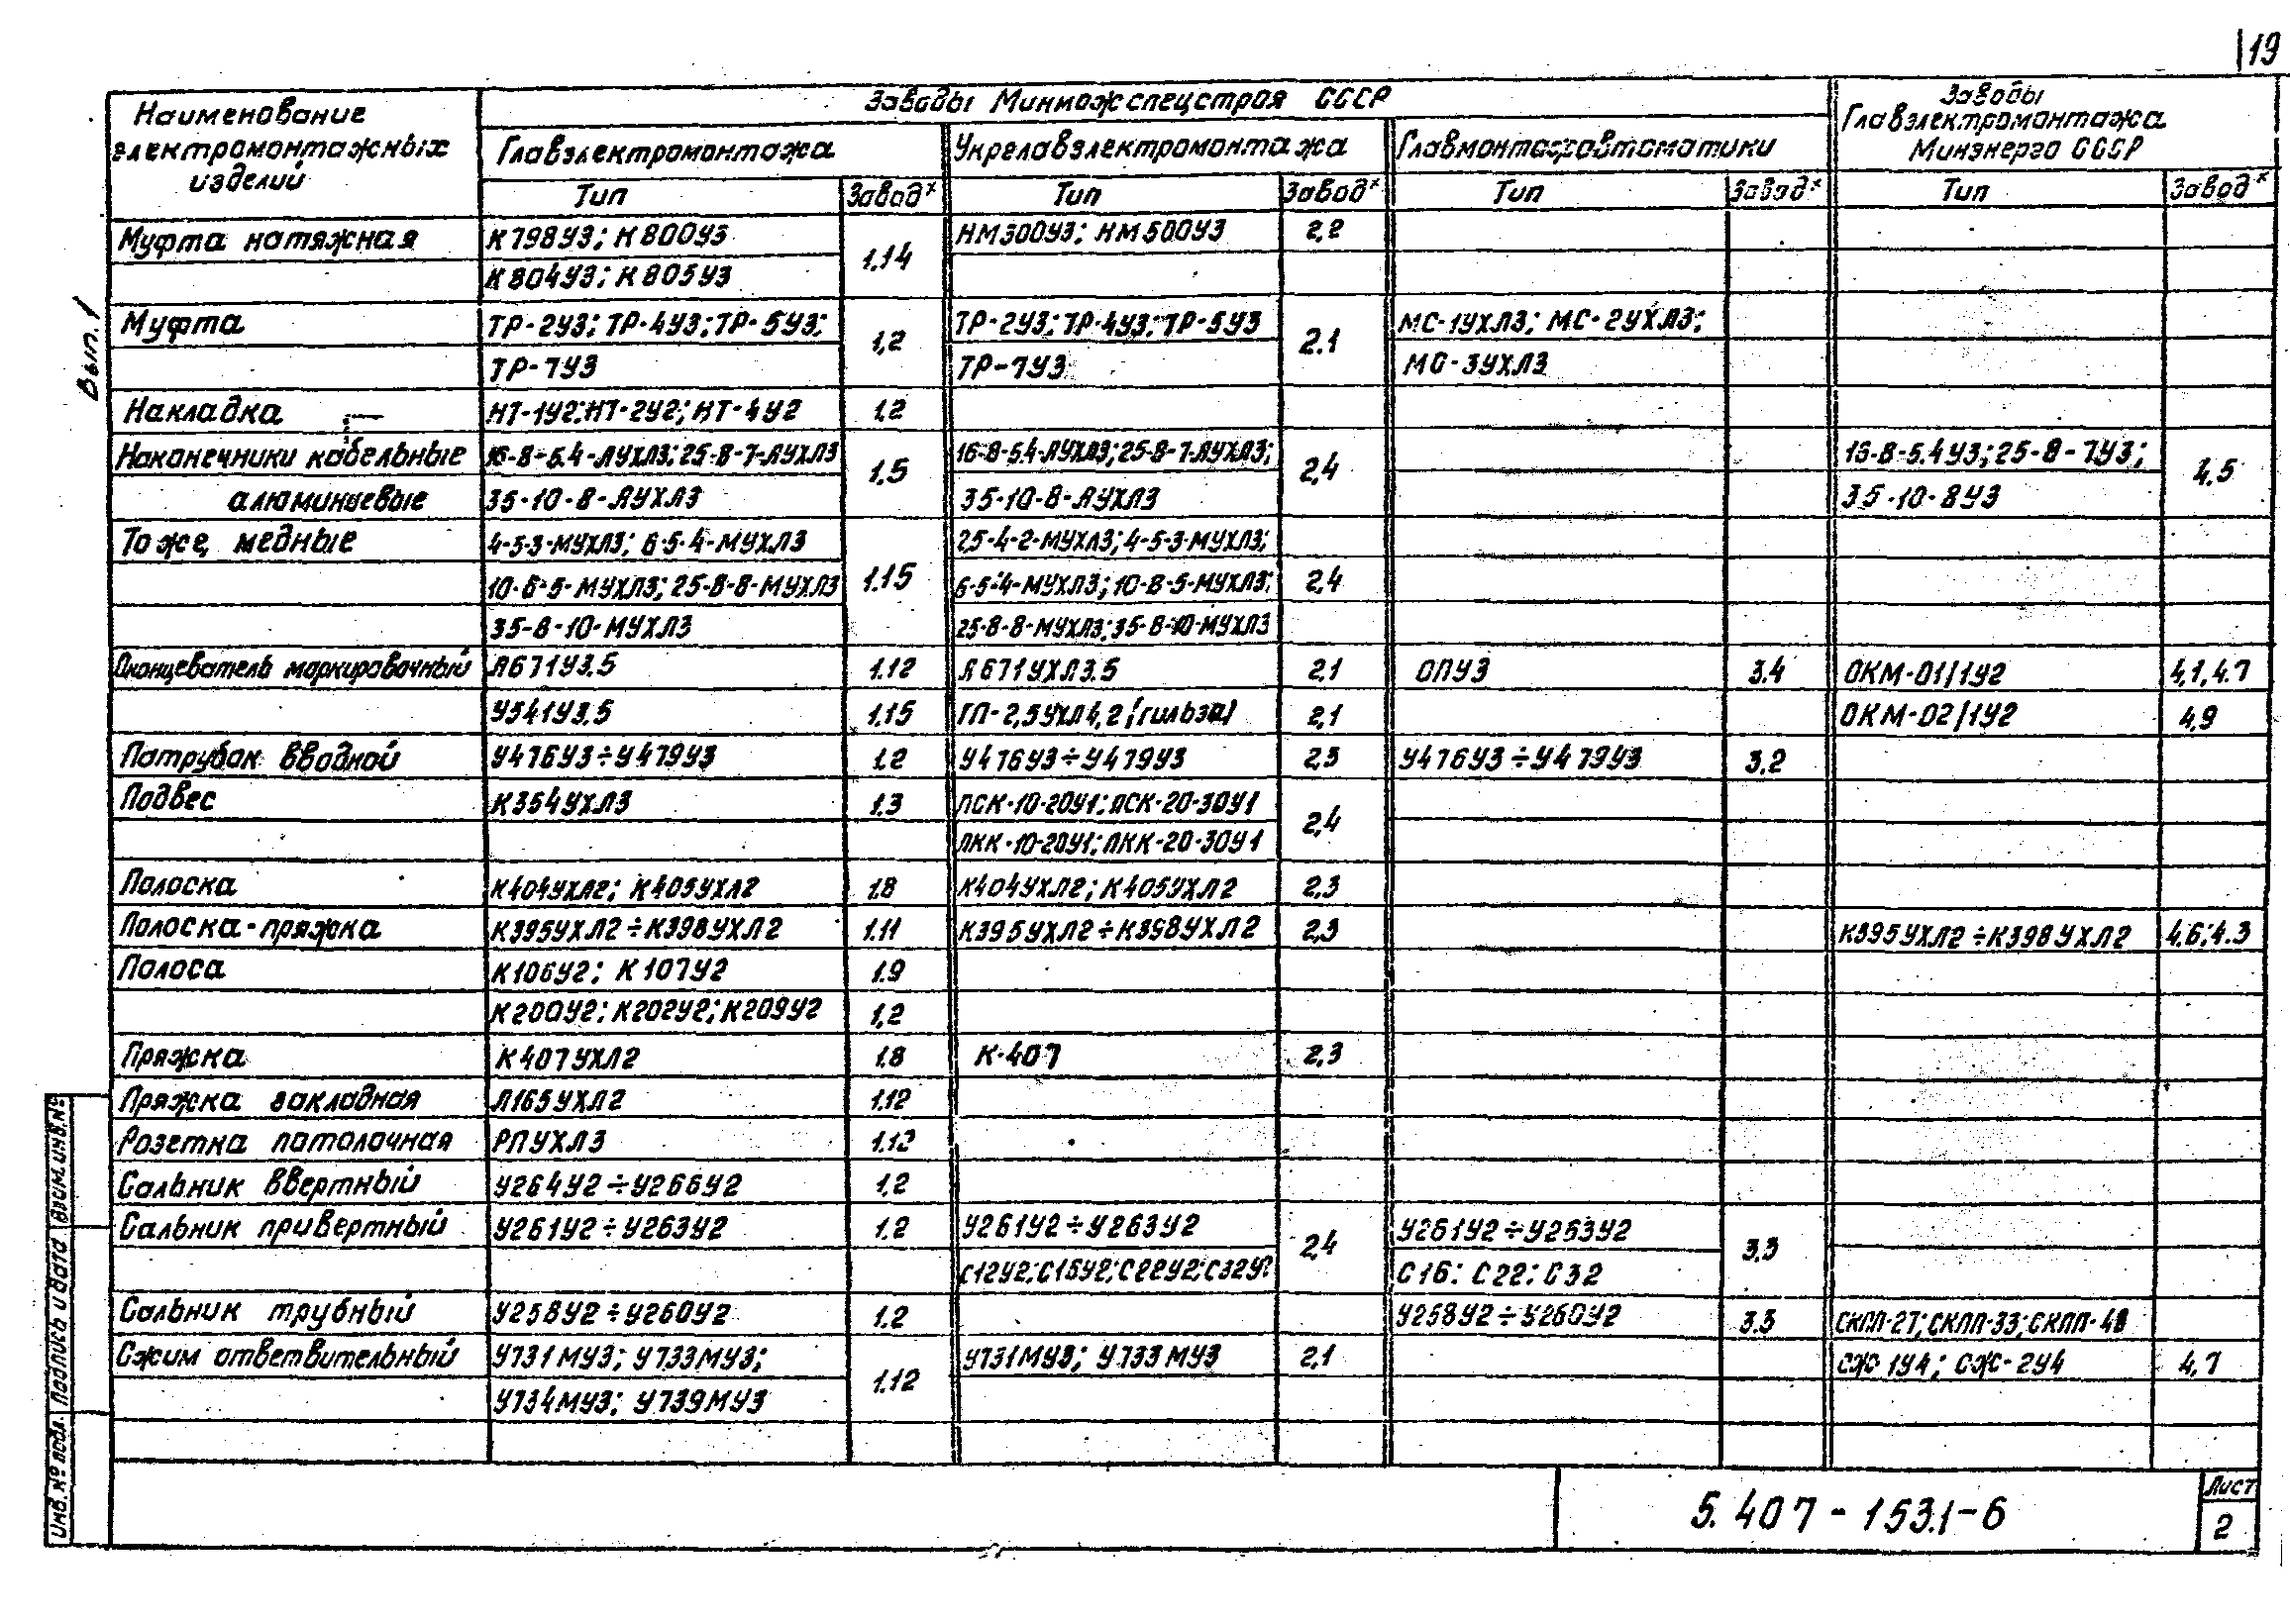 19
Вып. 1
Наименование электромонтажных изделий
Заводы Минмонжспецстроя СССР
Заводы Главэлектромонтажа Минэнерго СССР
Главэлектромонтажа Укрглавэлектромонтажа Главмонтажавтоматики
Тип Завод* Тип Завод* Тип Завод* Тип Завод*
Муфта натяжная К798У3; К800У3 1.14 НМ300У3; НМ500У3 2,2
К804У3; К805У3
Муфта ТР-2У3; ТР-4У3; ТР-5У3; 1,2 ТР-2У3; ТР-4У3; ТР-5У3 2.1 МС-1УХЛ3; МС-2УХЛ3;
ТР-7У3 ТР-7У3 МС-3УХЛ3
Накладка НТ-1У2; НТ-2У2; НТ-4У2 1.2
Наконечники кабельные 16-8-5.4-АУХЛ3; 25-8-7-АУХЛ3 1.5 16-8-5.4-АУХЛ3; 25-8-7-АУХЛ3; 2,4 16-8-5.4У3; 25-8-7У3; 4,5
алюминиевые 35-10-8-АУХЛ3 35-10-8-АУХЛ3 35-10-8У3
То же, медные 4-5-3-МУХЛ3; 6-5-4-МУХЛ3 1.15 2,5-4-2-МУХЛ3; 4-5-3-МУХЛ3; 2,4
10-6-5-МУХЛ3; 25-8-8-МУХЛ3 6-5-4-МУХЛ3; 10-8-5-МУХЛ3;
35-8-10-МУХЛ3 25-8-8-МУХЛ3; 35-8-10-МУХЛ3
Оконцеватель маркировочный А671У3.5 1.12 А671УХЛ3.5 2,1 ОПУ3 3.4 ОКМ-01/1У2 4,1, 4.7
У541У3.5 1.15 ГП-2,5УХЛ4,2 (гильза) 2,1 ОКМ-02/1У2 4,9
Патрубок вводной У476У3÷У479У3 1.2 У476У3÷У479У3 2,3 У476У3÷У479У3 3.2
Подвес К354УХЛ3 1.3 ПСК-10-20У1; ПСК-20-30У1 2,4
ПКК-10-20У1; ПКК-20-30У1
Полоска К404УХЛ2; К405УХЛ2 1.8 К404УХЛ2; К405УХЛ2 2,3
Полоска-пряжка К395УХЛ2÷К398УХЛ2 1.11 К395УХЛ2÷К398УХЛ2 2,3 К395УХЛ2÷К398УХЛ2 4.6; 4.3
Полоса К106У2; К107У2 1.9
К200У2; К202У2; К209У2 1,2
Пряжка К407УХЛ2 1.8 К-407 2,3
Пряжка закладная Л165УХЛ2 1.12
Розетка потолочная РПУХЛ3 1.12
Сальник ввертный У264У2÷У266У2 1,2
Сальник привертный У261У2÷У263У2 1.2 У261У2÷У263У2 2,4 У261У2÷У263У2 3.3
С12У2; С16У2; С22У2; С32У2 С16; С22; С32
Сальник трубный У258У2÷У260У2 1.2 У258У2÷У260У2 3.3 СКПП-27; СКПП-33; СКПП-48
Сжим ответвительный У731МУ3; У733МУ3; 1.12 У731МУ3; У733МУ3 2,1 СЖ-1У4; СЖ-2У4 4,7
У734МУ3; У739МУ3
Инв. № подл. Подпись и дата Взам. инв. №
5.407-153.1-6
Лист
2